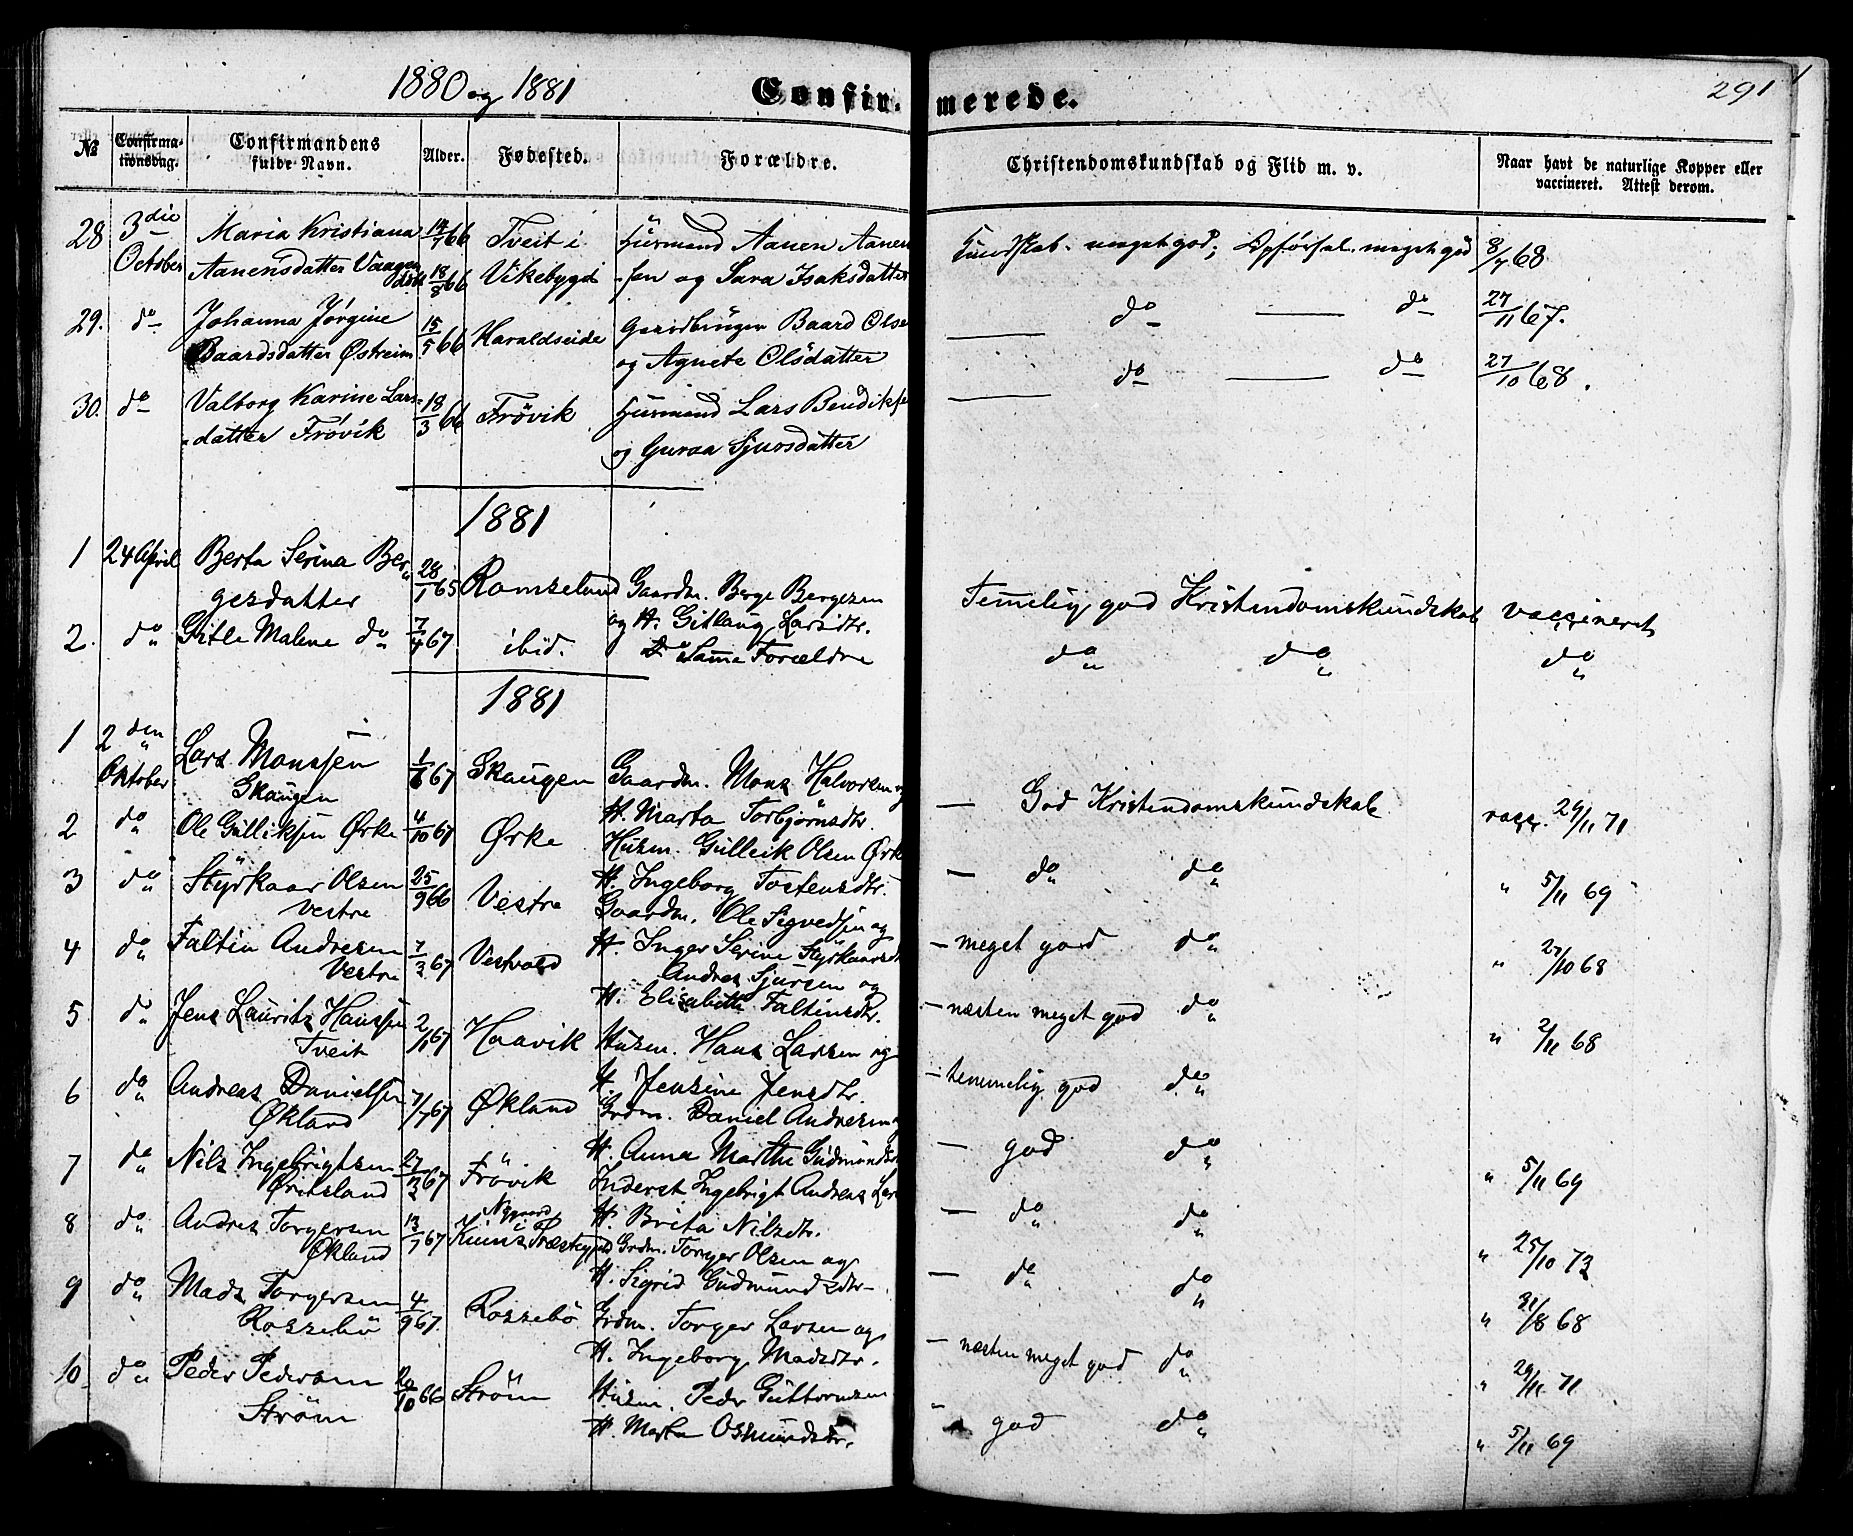 1880 og 1881
Confir- merede.
291
№
Confirma-
tionsdag.
Confirmandens
fulde Navn.
Alder.
Fødested.
Forældre.
Christendomskundskab og Flid m. v.
Naar havt de naturlige Kopper eller
vaccineret. Attest derom.
28 3die Maria Kristiana 14/7 66 Tveit i Husmand Aanen Aanen Kundskab meget god; Opførsel meget god 8/7 68
October Aanensdatter Vaagen 18/8 66 Vikebygd -sen og Sara Isaksdatter
29. do Johanna Jørgine 15/5 66 Haraldseide Gaardbruger Baard Olse do do 27/11 67.
Baardsdatter Østreim og Agnete Olsdatter
30. do Valborg Karine Lars- 18/3 66 Frövik Husmand Lars Bendikse do do 27/10 68.
-datter Frövik og Guroa Sjursdatter
1881
1 24 April Berta Serina Ber 28/1 65 Romselund Gaardm. Berge Bergesen Temmelig god Kristendomskundskab vaccineret
gesdatter og H. Gitlaug Larsdtr.
2. do Gitle Malene do 7/4 67 ibid. Samme Forældre do do do
1881
1 2den Lars Monssen 1/6 67 Skaugen Gaardm. Mons Halvorsen og — God Kristendomskundskab vacc. 29/11 71
Oktober Skaugen H. Marta Torbjörnsdtr.
2 do Ole Gulliksen Ørke 4/10 67 Ørke Husm. Gulleik Olsen Ørk — do do " 5/11 69
H. Ingeborg Tostensdtr.
3 do Styrkaar Olsen 25/9 66 Vestre Gaardm. Ole Sigvedsen og — meget god do " 27/10 68
Vestre H. Inger Serine Styrkaarsdt
4 do Faltin Andresen 7/3 67 Vestvold Andres Sjursen og — næsten meget god do " 2/11 68
Vestre H. Elisabeth Faltinsdtr.
5 do Jens Lauritz Hanssen 2/11 67 Haavik Husm. Hans Larsen og — temmelig god do
Tveit H. Jensine Jensdtr.
6 do Andreas Danielsen 7/7 67 Økland Grdm. Daniel Andresen — god do " 5/11 69
Økland H. Anna Marthe Gudmunds
7 do Nils Ingebrigtsen 27/2 67 Frövik Inderst Ingebrigt Andreas Lar — do do " 25/10 72
Øritsland H. Brita Nilsdtr.
8 do Andres Torgersen 13/7 67 Nygaard i Grdm. Torger Olsen og — do do " 31/8 68
Økland H. Sigrid Gudmundsdtr
9 do Mads Torgersen 4/9 67. Rossebö Grdm. Torger Larsen og — næsten meget god do " 29/11 71
Rossebö H. Ingeborg Madsdtr.
10 do Peder Pedersen 20/10 66 Ström Husm. Peder Guttormsen " god do " 5/11 69
Ström H. Marta Osmundsdtr.